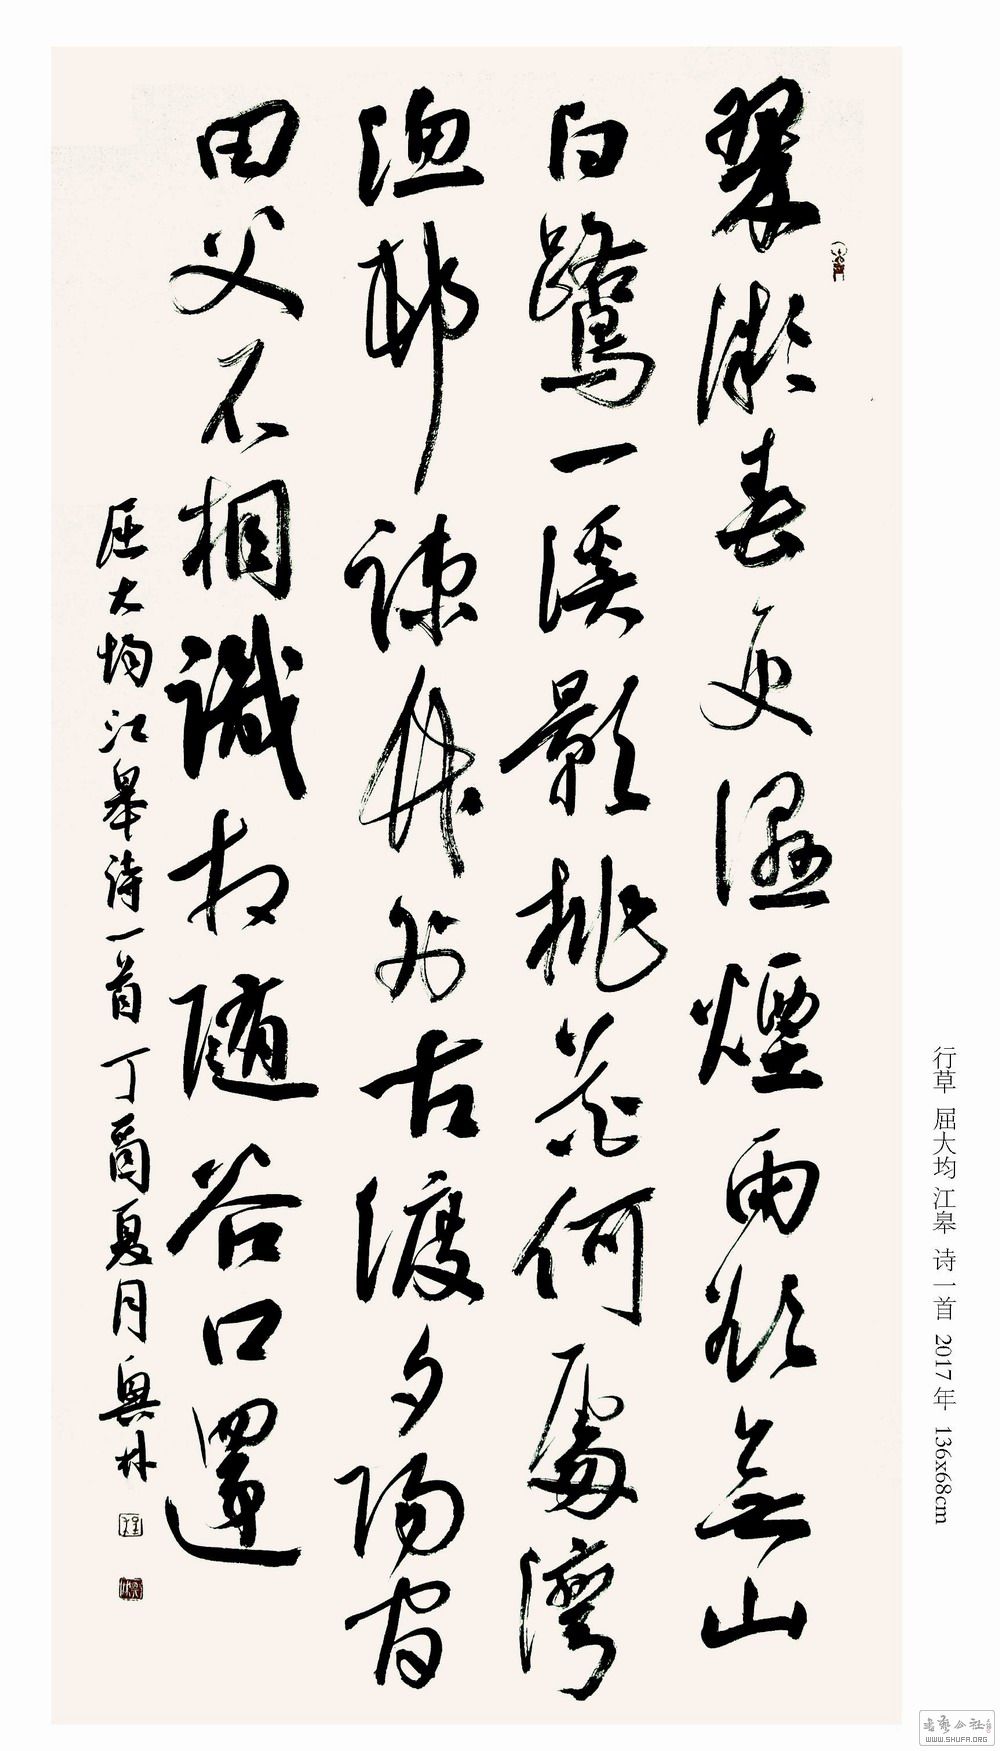 翠微春更濕煙雨欲無山
白鷺一溪影桃花何處灣
漁邨疎竹外古渡夕陽間
田父不相識相隨谷口還
屈大均江皋诗一首丁酉夏月興林
行草 屈大均 江皋 诗一首 2017年 136x68cm
书艺公社
WWW.SHUFA.ORG